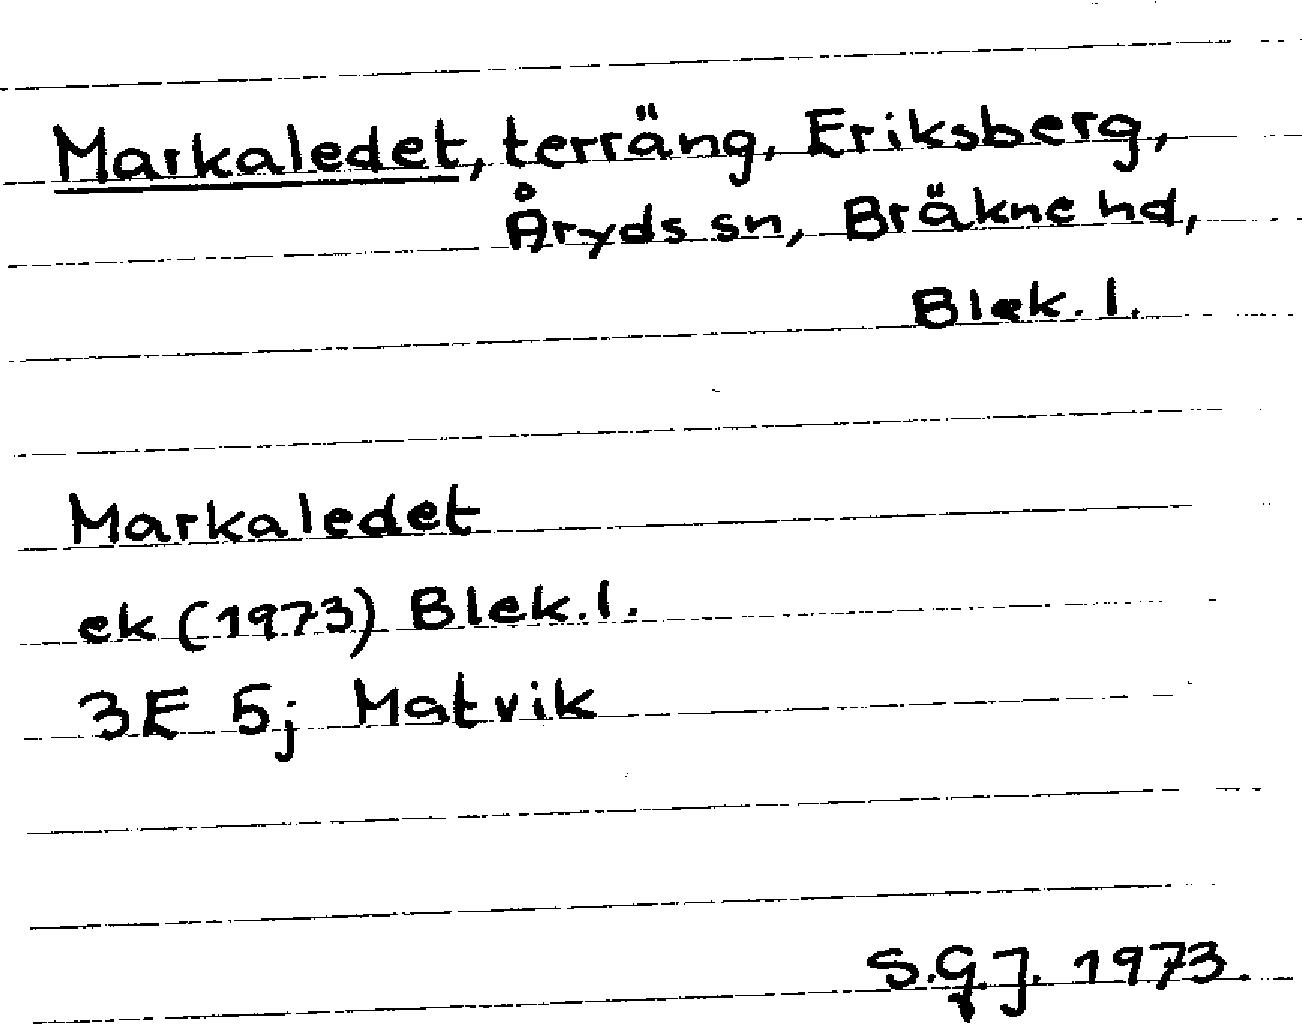 Markaledet, terräng, Eriksberg,
Åryds sn, Bräkne hd,
Blek. l.
Markaledet
ek (1973) Blek. l.
3E 5j Matvik
S.G.J. 1973.